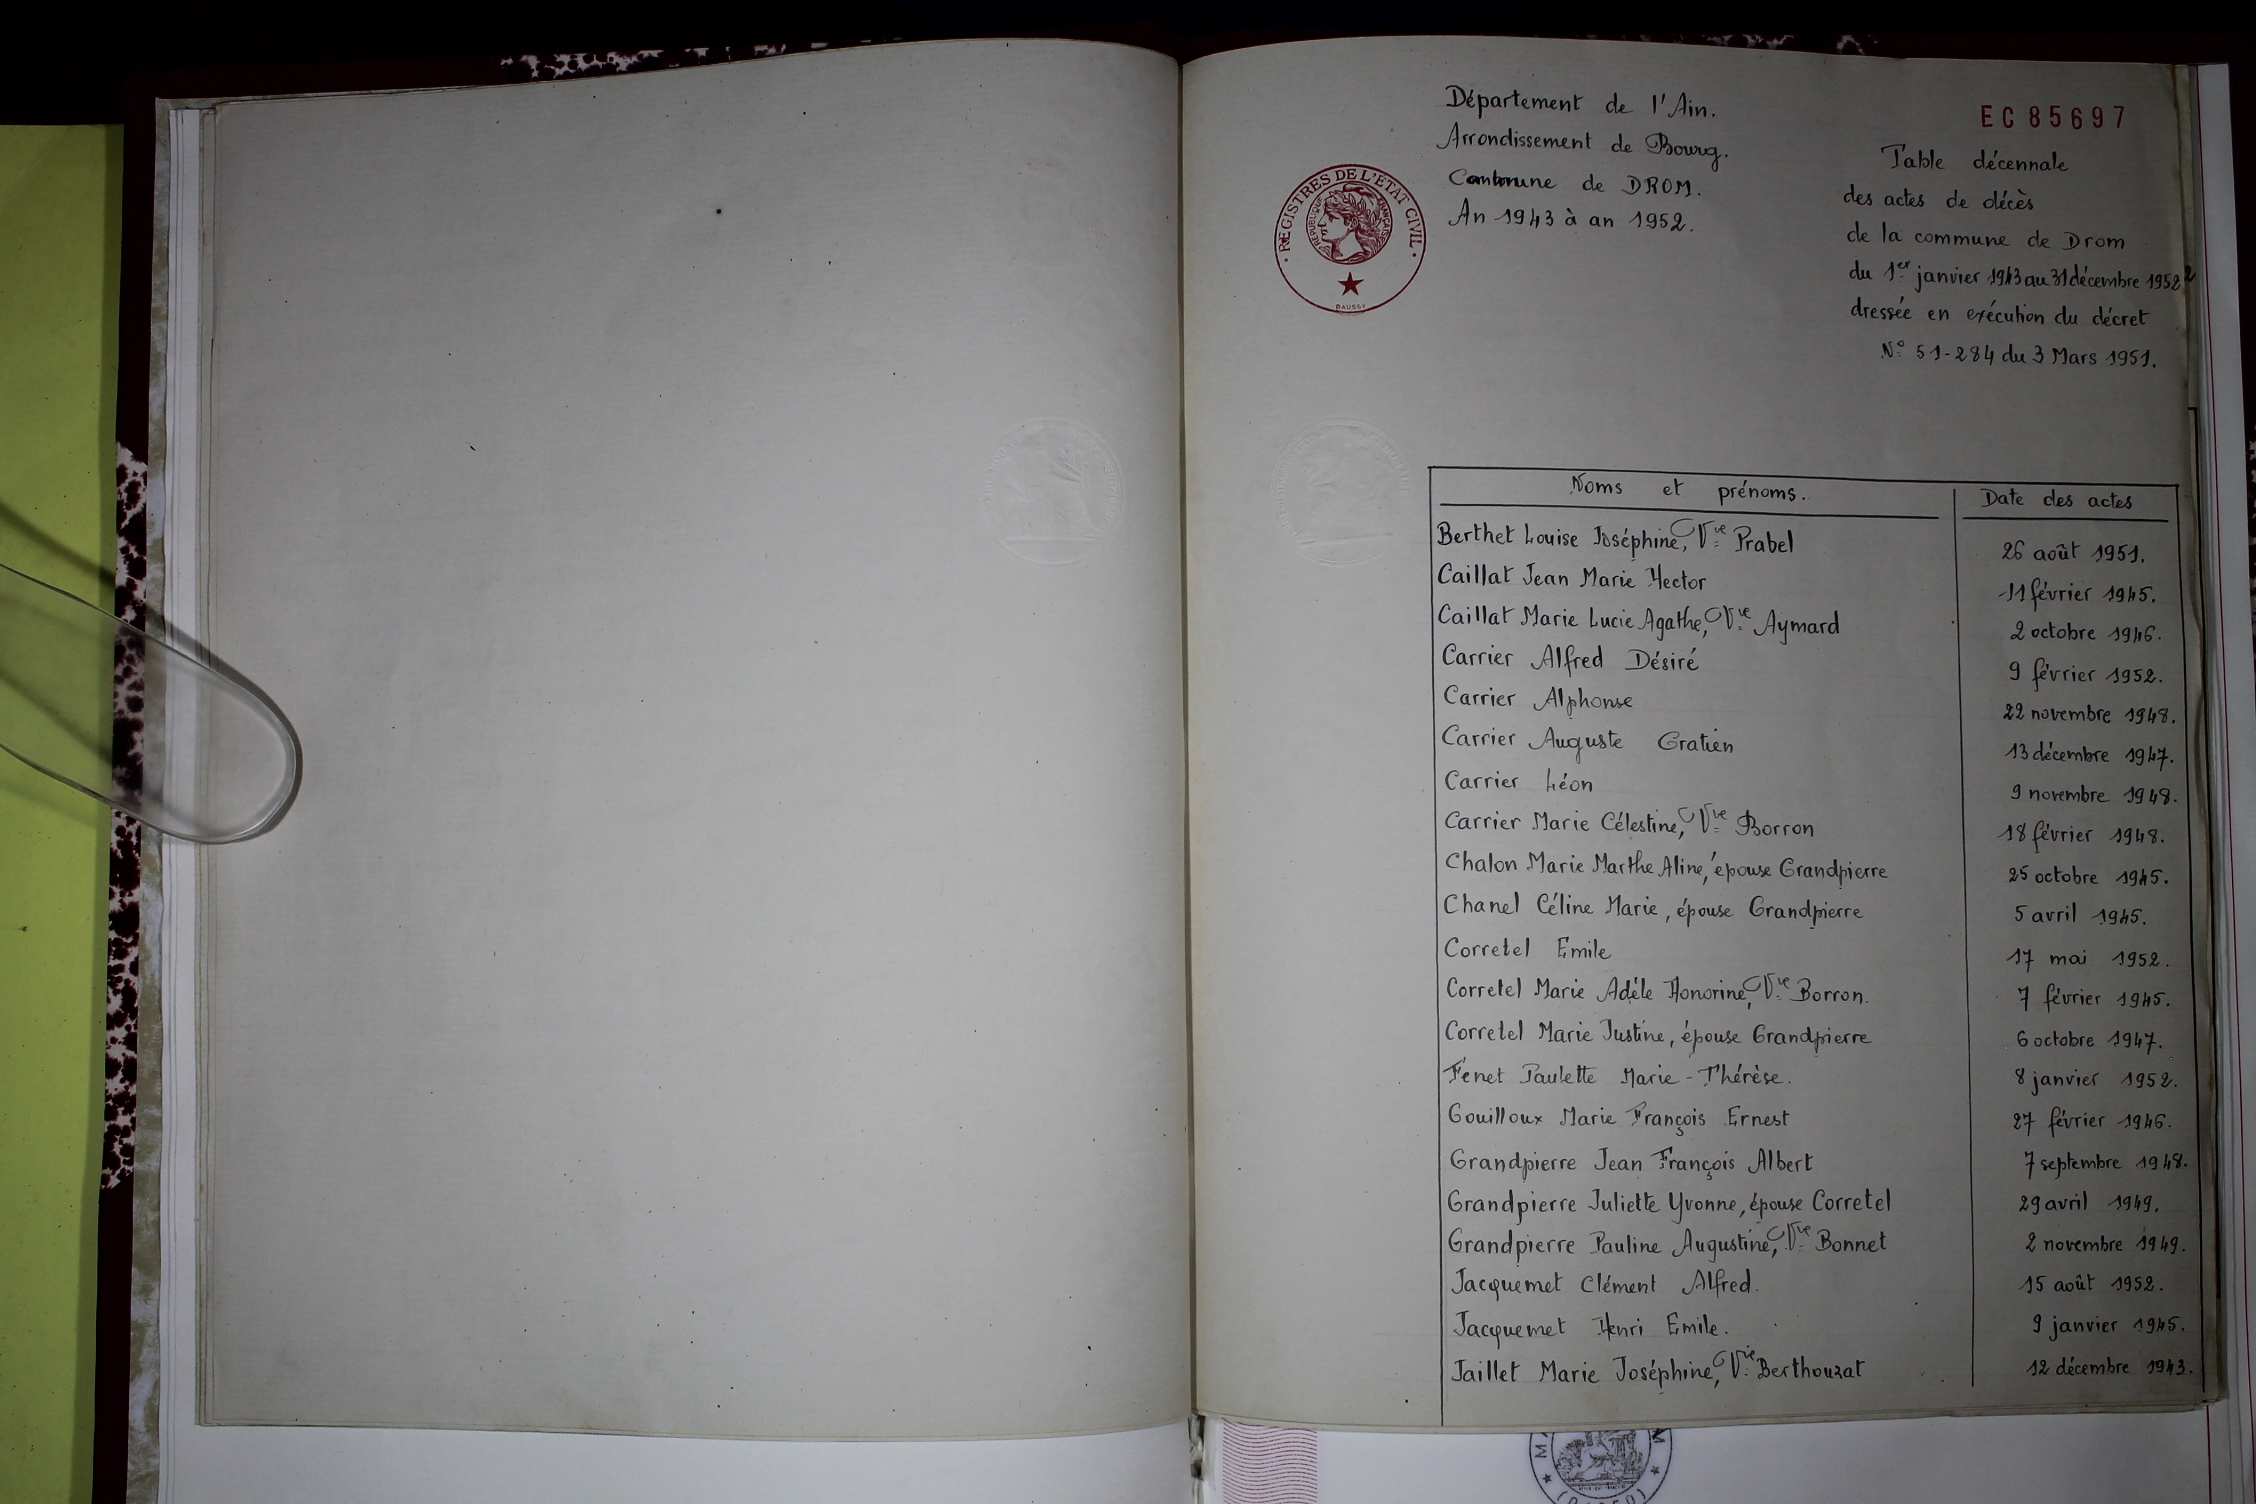 Département de l'Ain.
Arrondissement de Bourg.
Commune de DROM.
An 1943 à an 1952.
REGISTRES DE L'ETAT CIVIL
REPUBLIQUE FRANÇAISE
DAUSSY
EC 85697
Table décennale
des actes de décès
de la commune de Drom
du 1er janvier 1943 au 31 décembre 1952
dressée en exécution du décret
N° 51-284 du 3 Mars 1951.
Noms et prénoms. Date des actes
Berthet Louise Joséphine, Vve Prabel 26 août 1951.
Caillat Jean Marie Hector 11 février 1945.
Caillat Marie Lucie Agathe, Vve Aymard 2 octobre 1946.
Carrier Alfred Désiré 9 février 1952.
Carrier Alphonse 22 novembre 1948.
Carrier Auguste Gratien 13 décembre 1947.
Carrier Léon 9 novembre 1948.
Carrier Marie Célestine, Vve Borron 18 février 1948.
Chalon Marie Marthe Aline, épouse Grandpierre 25 octobre 1945.
Chanel Céline Marie, épouse Grandpierre 5 avril 1945.
Corretel Emile 17 mai 1952.
Corretel Marie Adèle Honorine, Vve Borron. 7 février 1945.
Corretel Marie Justine, épouse Grandpierre 6 octobre 1947.
Fenet Paulette Marie-Thérèse. 8 janvier 1952.
Gouilloux Marie François Ernest 27 février 1946.
Grandpierre Jean François Albert 7 septembre 1948.
Grandpierre Juliette Yvonne, épouse Corretel 29 avril 1949.
Grandpierre Pauline Augustine, Vve Bonnet 2 novembre 1949.
Jacquemet Clément Alfred. 15 août 1952.
Jacquemet Henri Emile. 9 janvier 1945.
Jaillet Marie Joséphine, Vve Berthouzat 12 décembre 1943.